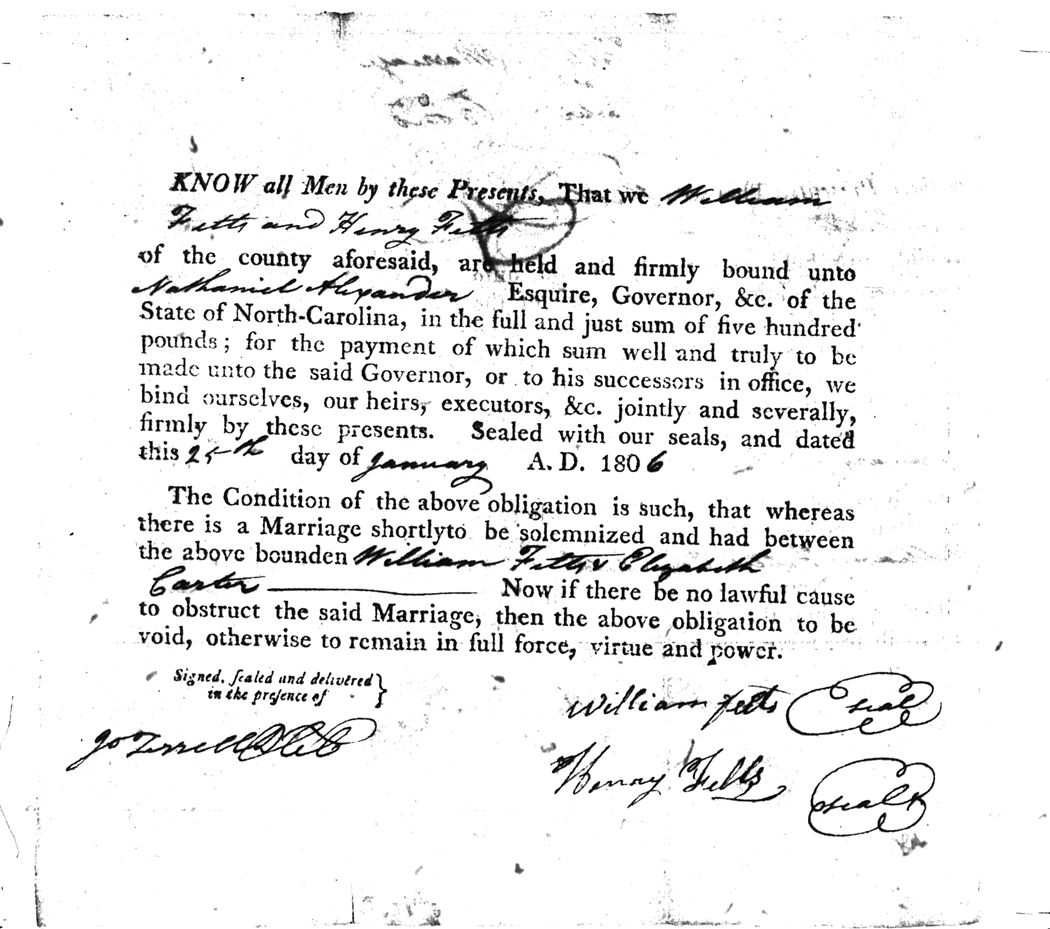 KNOW all Men by these Presents, That we William
Fetts and Henry Fetts
of the county aforesaid, are held and firmly bound unto
Nathaniel Alexander Esquire, Governor, &c. of the
State of North-Carolina, in the full and just sum of five hundred
pounds; for the payment of which sum well and truly to be
made unto the said Governor, or to his successors in office, we
bind ourselves, our heirs, executors, &c. jointly and severally,
firmly by these presents. Sealed with our seals, and dated
this 25th day of January A. D. 1806
The Condition of the above obligation is such, that whereas
there is a Marriage shortlyto be solemnized and had between
the above bounden William Fetts & Elizabeth
Carter Now if there be no lawful cause
to obstruct the said Marriage, then the above obligation to be
void, otherwise to remain in full force, virtue and power.
Signed, sealed and delivered
in the presence of }
William Fetts seal
Jo Terrell
Henry Felts seal